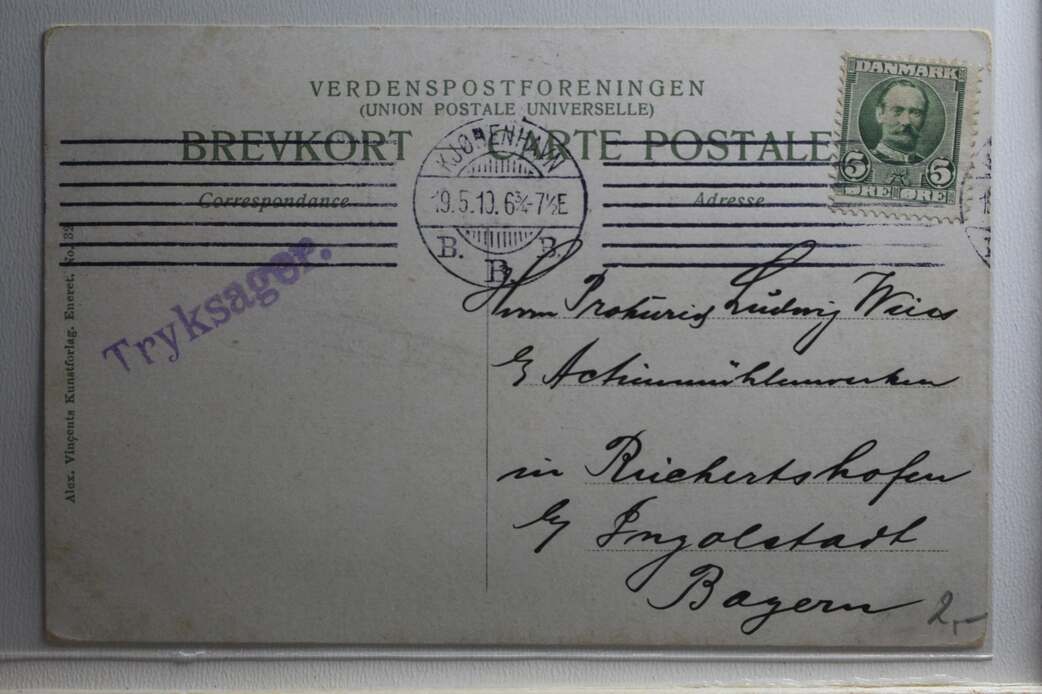 VERDENSPOSTFORENINGEN
(UNION POSTALE UNIVERSELLE)
BREVKORT CARTE POSTALE
Correspondance
Adresse
DANMARK
5 5
ØRE ØRE
KJØBENHAVN
19.5.10. 6¾-7½E
B. B. B.
Tryksager.
Alex. Vincents Kunstforlag. Eneret. No. 32
Herrn Ludwig
Actienmühlenwerken
in Reichertshofen
b/ Ingolstadt
Bayern
2,-